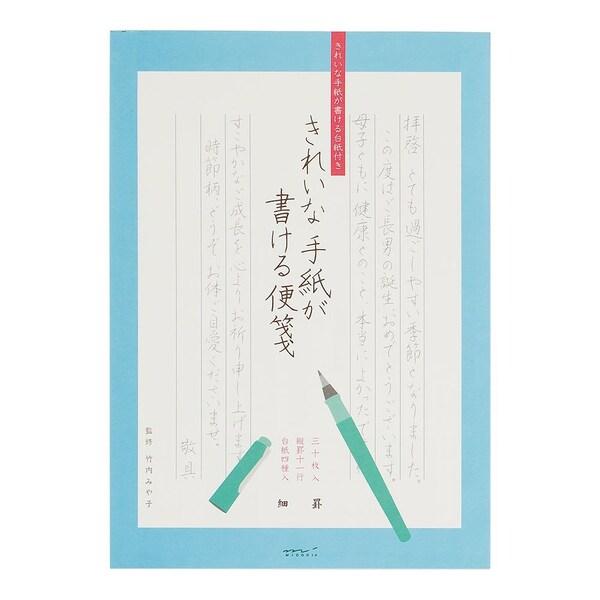 きれいな手紙が書ける台紙付き
拝啓 とても過ごしやすい季節となりました。
この度はご長男の誕生、おめでとうございます。
母子ともに健康とのこと 本当によかったで
きれいな手紙が
書ける便箋
すこやかなご成長を心よりお祈り申し上げます
時節柄、どうぞお体ご自愛くださいませ。
敬具
監修 竹内みや子
三十枚入
縦罫十一行
台紙四種入
細罫
MIDORI